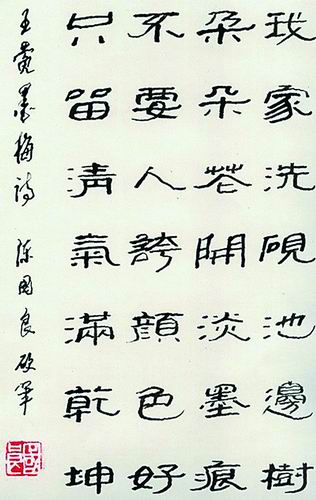 我家洗硯池邊樹
朵朵花開淡墨痕
不要人誇顏色好
只留清氣滿乾坤
王冕墨梅詩 陳国良硬筆
國良